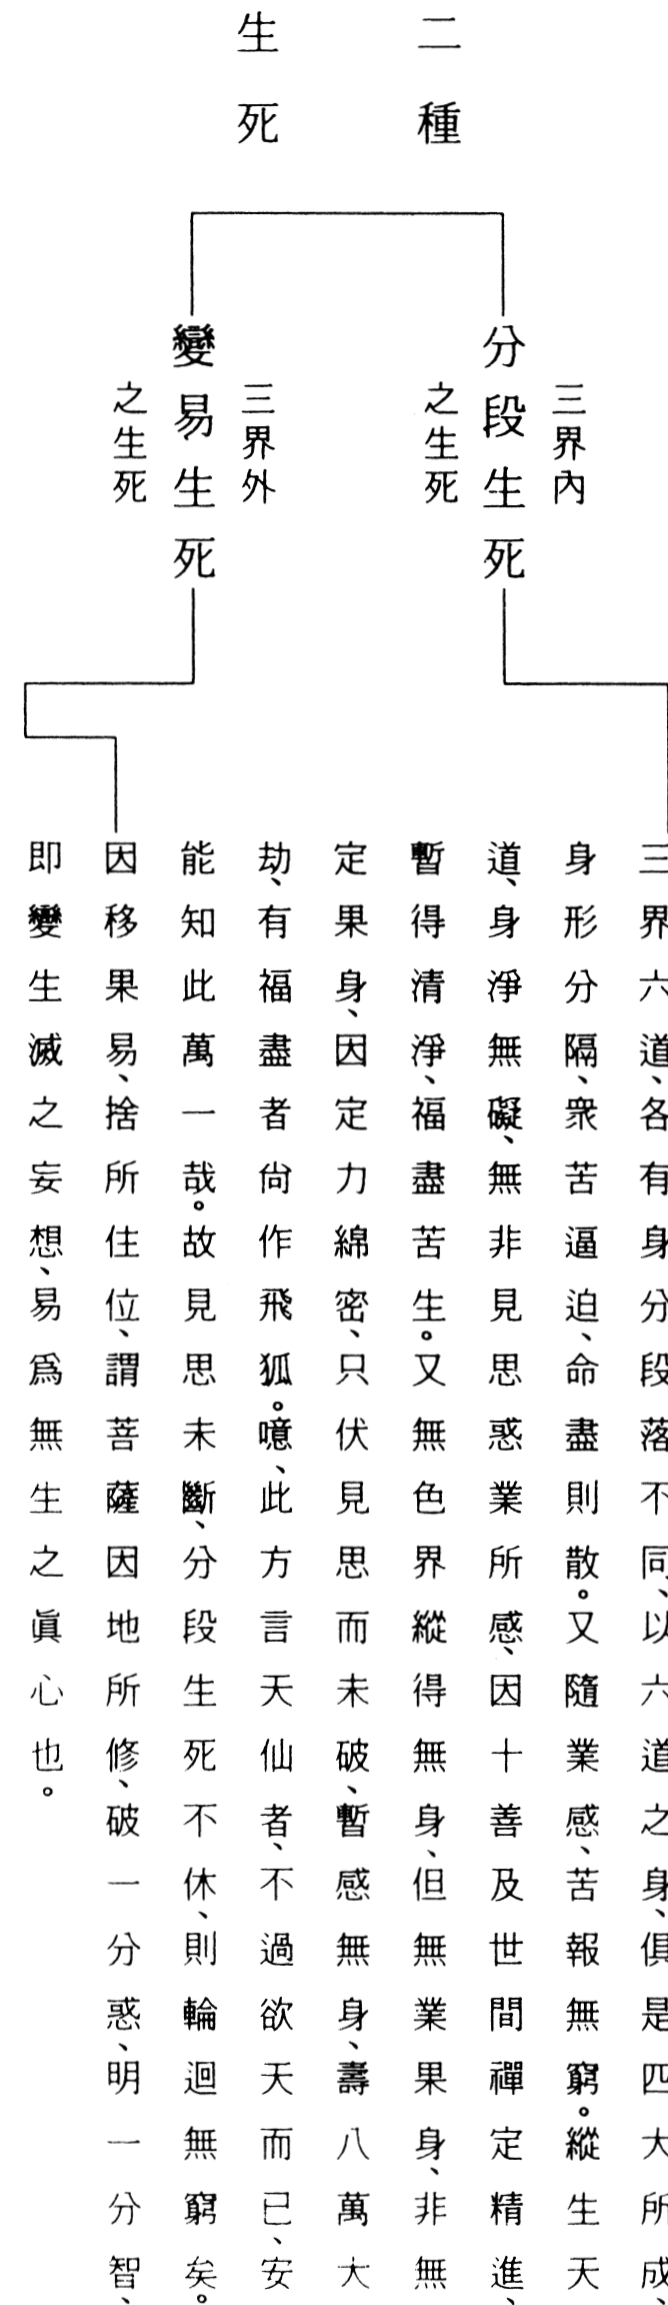 二種
生死
三界內
分段生死
之生死
三界外
變易生死
之生死
三界六道、各有身分段落不同、以六道之身、俱是四大所成、
身形分隔、衆苦逼迫、命盡則散。又隨業感、苦報無窮。縱生天
道、身淨無礙、無非見思惑業所感、因十善及世間禪定精進、
暫得清淨、福盡苦生。又無色界縱得無身、但無業果身、非無
定果身、因定力綿密、只伏見思而未破、暫感無身、壽八萬大
劫、有福盡者尙作飛狐。噫、此方言天仙者、不過欲天而已、安
能知此萬一哉。故見思未斷、分段生死不休、則輪迴無窮矣。
因移果易、捨所住位、謂菩薩因地所修、破一分惑、明一分智、
即變生滅之妄想、易爲無生之眞心也。